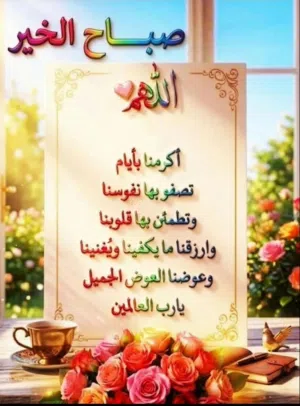 صباح الخير
اللهم
أكرمنا بأيام
تصفو بها نفوسنا
وتطمئن بها قلوبنا
وارزقنا ما يكفينا ويُغنينا
وعوضنا العوض الجميل
يارب العالمين